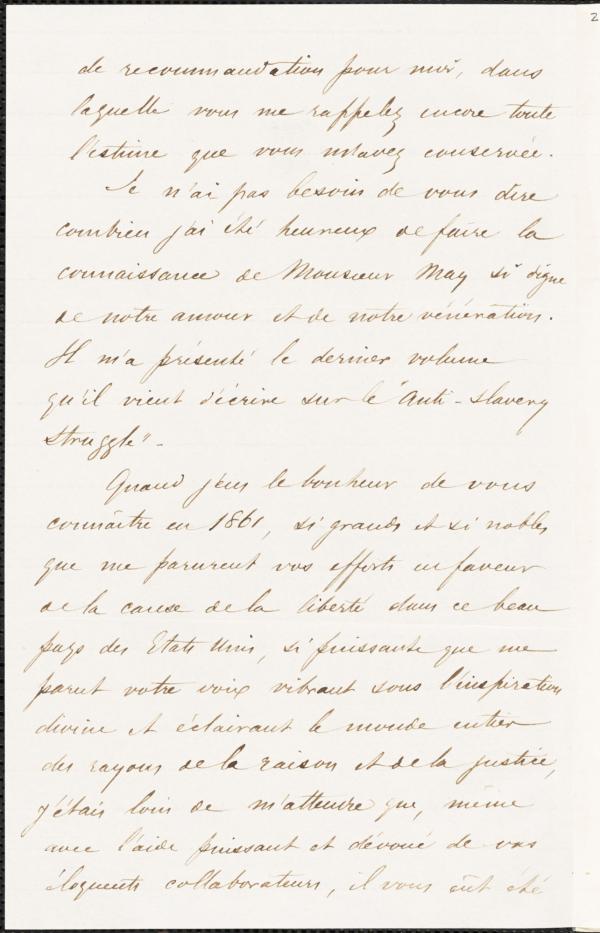 2
de recommandation pour moi, dans
laquelle vous me rappelez encore toute
l'estime que vous m'avez conservée.
Je n'ai pas besoin de vous dire
combien j'ai été heureux de faire la
connaissance de Monsieur May si digne
de notre amour et de notre vénération.
Il m'a présenté le dernier volume
qu'il vient d'écrire sur le "Anti-slavery
struggle".
Quand j'eus le bonheur de vous
connaître en 1861, si grands et si nobles
que me parurent vos efforts en faveur
de la cause de la liberté dans ce beau
pays des Etats Unis, si puissante que me
parut votre voix vibrant sous l'inspiration
divine et éclairant le monde entier
des rayons de la raison et de la justice,
j'étais loin de m'attendre que, même
avec l'aide puissant et dévoué de vos
éloquents collaborateurs, il vous eût été